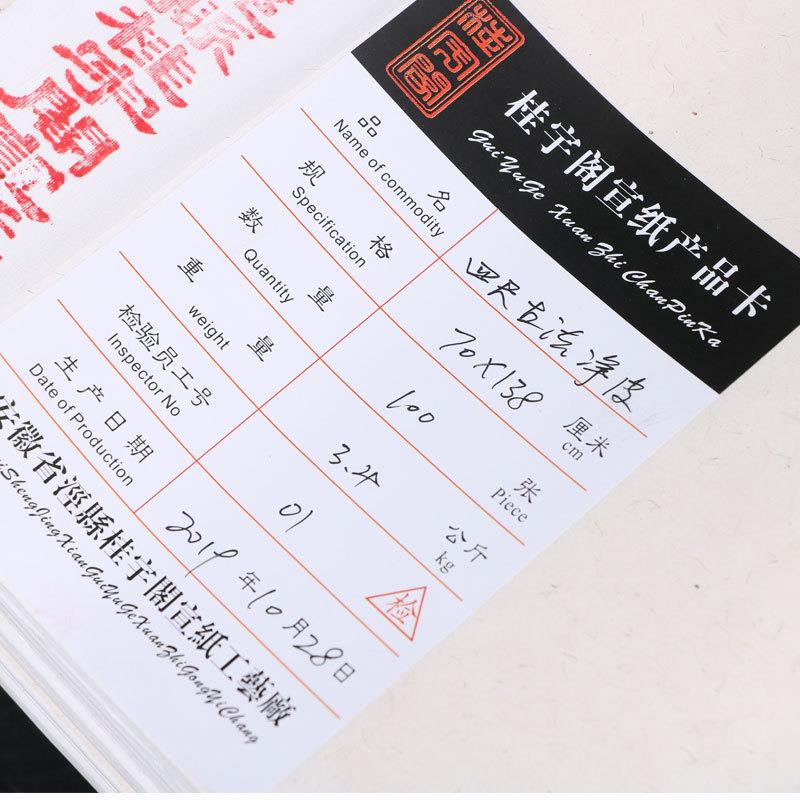 桂宇阁
桂宇阁宣纸产品卡
GuiYuGe Xuan Zhi ChanPinKa
品名 四尺古法净皮
Name of commodity
规格 70X138 厘米
Specification cm
数量 100 张
Quantity Piece
重量 3.4 公斤
weight kg
检验员工号 01 检
Inspector No
生产日期 2019年10月28日
Date of Production
安徽省涇縣桂宇閣宣紙工藝廠
ShengJingXianGuiYuGeXuanZhiGongYiChang